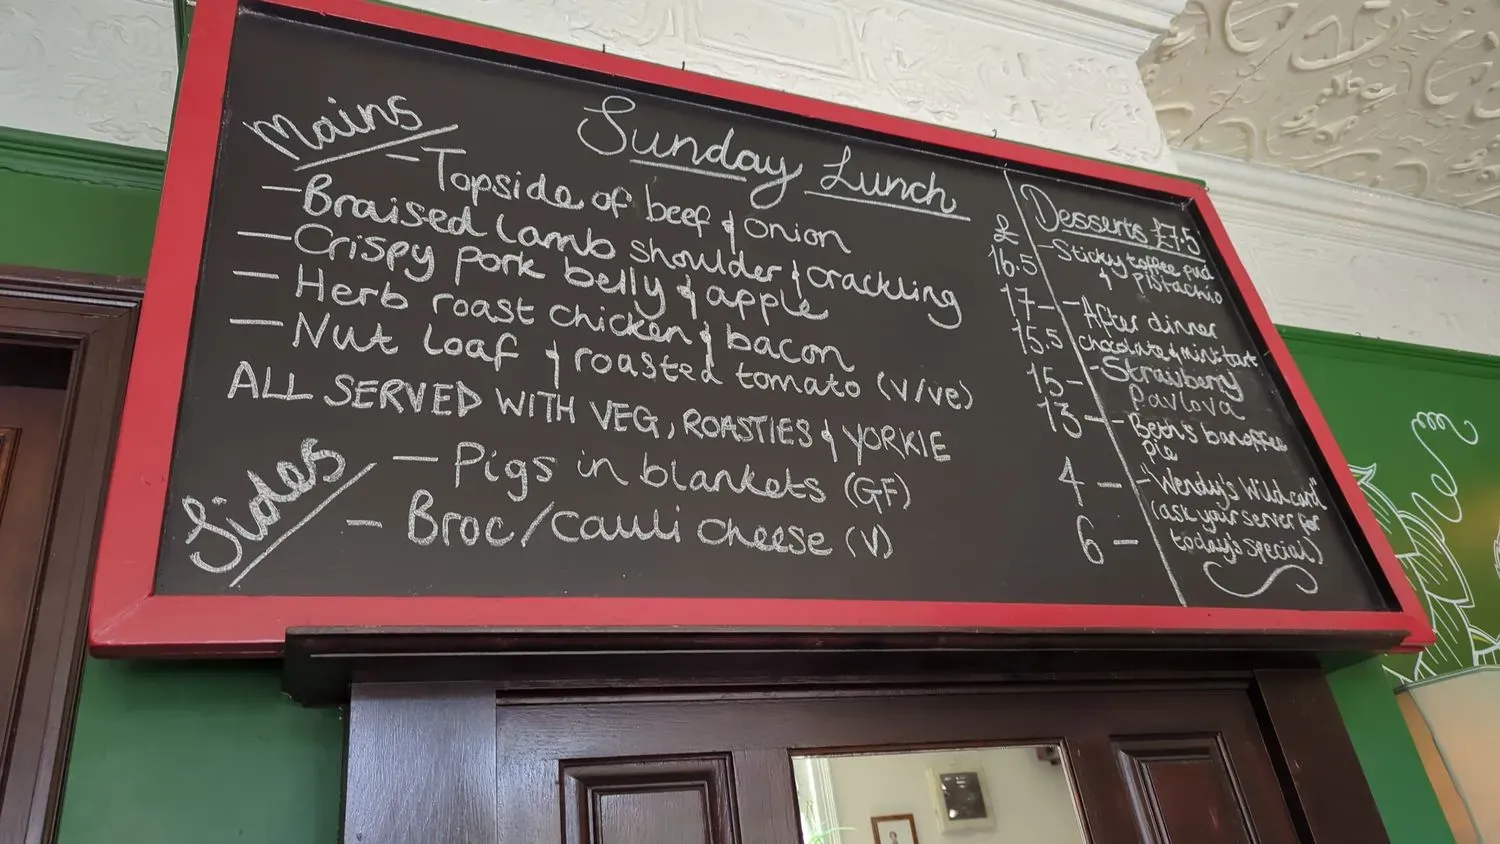 Sunday Lunch
Mains £
- Topside of beef & onion 16.5
- Braised lamb shoulder & crackling 17-
- Crispy pork belly & apple 15.5
- Herb roast chicken & bacon 15-
- Nut loaf & roasted tomato (v/ve) 13-
ALL SERVED WITH VEG, ROASTIES & YORKIE
Sides
- Pigs in blankets (GF) 4-
- Broc/cauli cheese (V) 6-
Desserts £7.5
- Sticky toffee pud
& Pistachio
- After dinner
chocolate & mint tart
- Strawberry
Pavlova
- Beth's banoffee
Pie
- "Wendy's Wildcard"
(ask your server for
today's special)